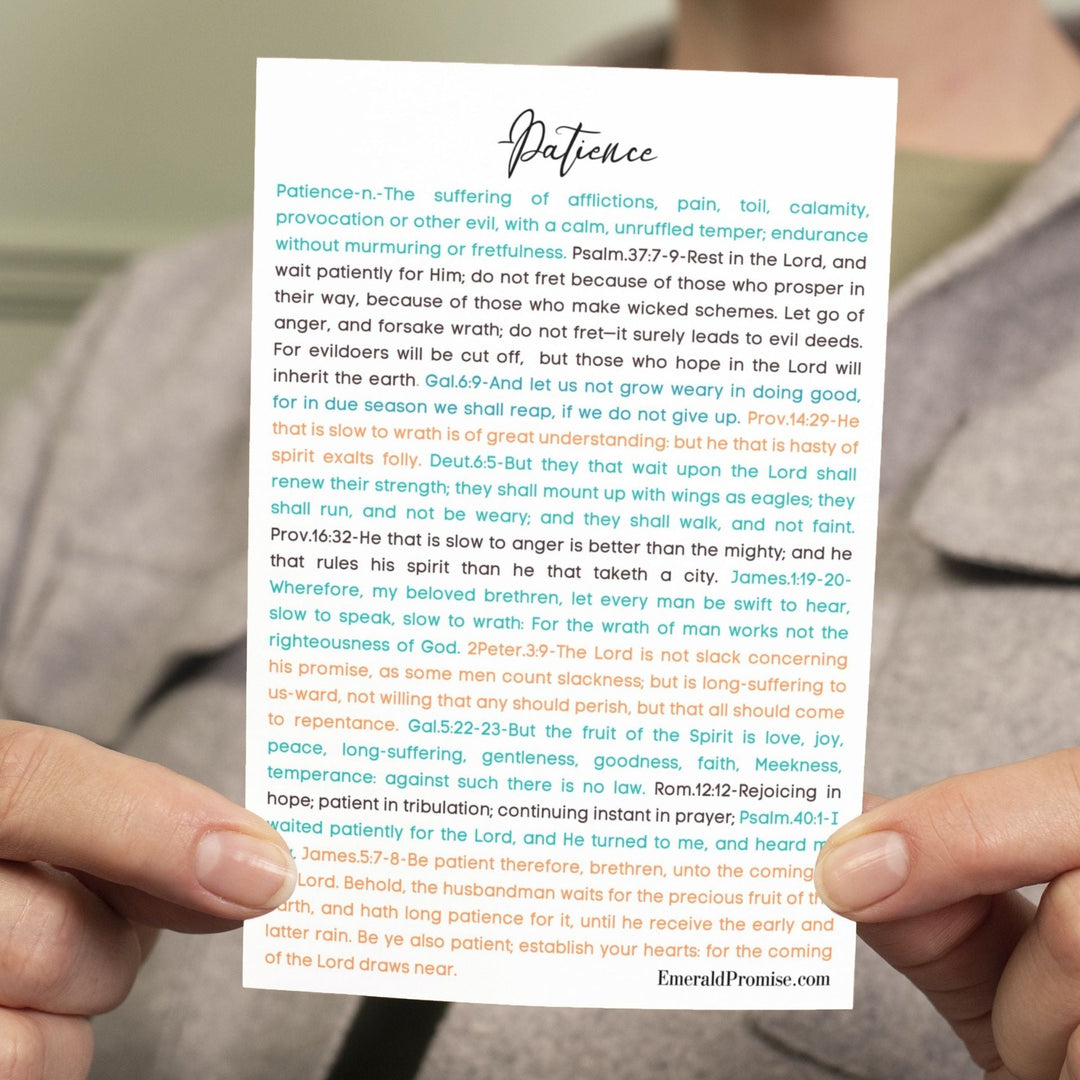 Patience
Patience-n.-The suffering of afflictions, pain, toil, calamity,
provocation or other evil, with a calm, unruffled temper; endurance
without murmuring or fretfulness. Psalm.37:7-9-Rest in the Lord, and
wait patiently for Him; do not fret because of those who prosper in
their way, because of those who make wicked schemes. Let go of
anger, and forsake wrath; do not fret—it surely leads to evil deeds.
For evildoers will be cut off, but those who hope in the Lord will
inherit the earth. Gal.6:9-And let us not grow weary in doing good,
for in due season we shall reap, if we do not give up. Prov.14:29-He
that is slow to wrath is of great understanding: but he that is hasty of
spirit exalts folly. Deut.6:5-But they that wait upon the Lord shall
renew their strength; they shall mount up with wings as eagles; they
shall run, and not be weary; and they shall walk, and not faint.
Prov.16:32-He that is slow to anger is better than the mighty; and he
that rules his spirit than he that taketh a city. James.1:19-20-
Wherefore, my beloved brethren, let every man be swift to hear,
slow to speak, slow to wrath: For the wrath of man works not the
righteousness of God. 2Peter.3:9-The Lord is not slack concerning
his promise, as some men count slackness; but is long-suffering to
us-ward, not willing that any should perish, but that all should come
to repentance. Gal.5:22-23-But the fruit of the Spirit is love, joy,
peace, long-suffering, gentleness, goodness, faith, Meekness,
temperance: against such there is no law. Rom.12:12-Rejoicing in
hope; patient in tribulation; continuing instant in prayer; Psalm.40:1-I
waited patiently for the Lord, and He turned to me, and heard
James.5:7-8-Be patient therefore, brethren, unto the coming
Lord. Behold, the husbandman waits for the precious fruit of
and hath long patience for it, until he receive the early and
latter rain. Be ye also patient; establish your hearts: for the coming
of the Lord draws near.
EmeraldPromise.com